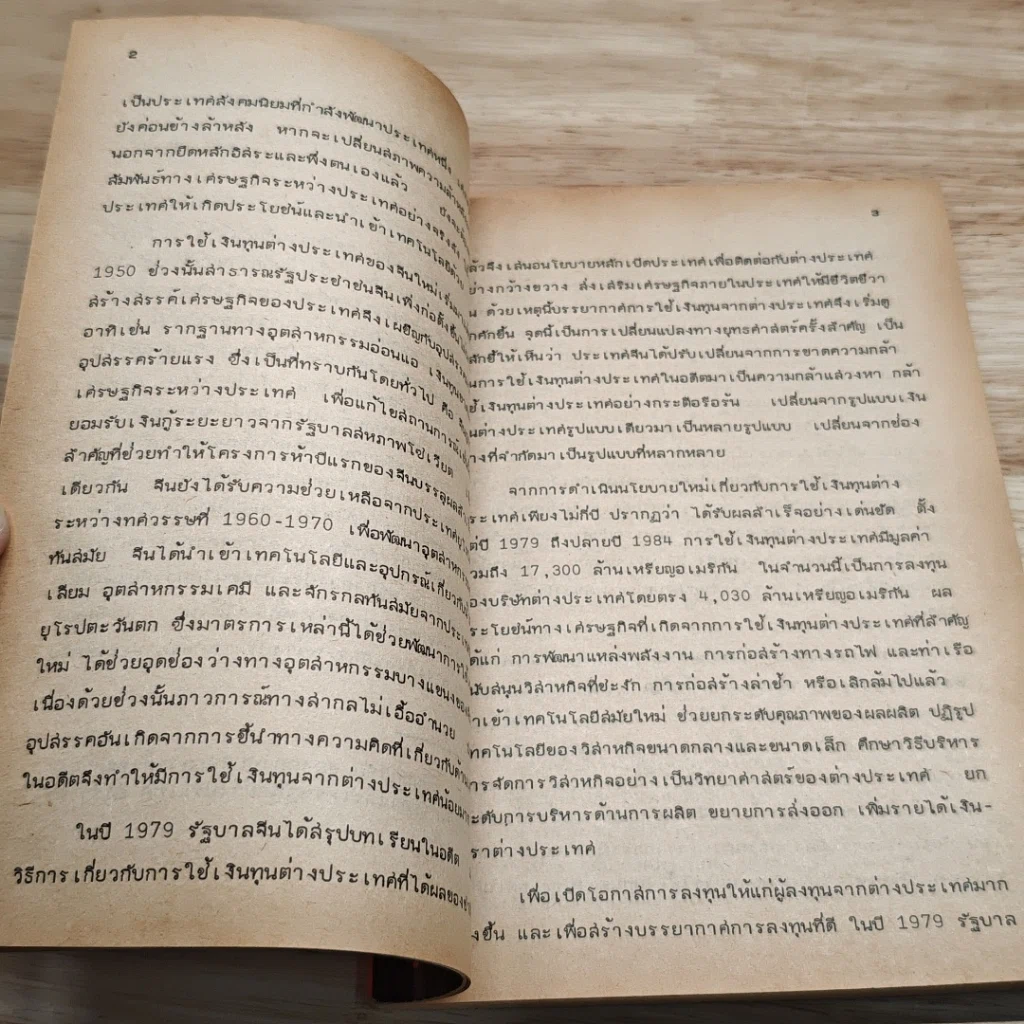 2
เป็นประเทศสังคมนิยมที่กำลังพัฒนาประเทศหนึ่ง
ยังค่อนข้างล้าหลัง หากจะเปลี่ยนสภาพความล้าหลัง
นอกจากยึดหลักอิสระและพึ่งตนเองแล้ว
สัมพันธ์ทางเศรษฐกิจระหว่างประเทศอย่างจริงจัง
ประเทศให้เกิดประโยชน์และนำเข้าเทคโนโลยีด้วย
การใช้เงินทุนต่างประเทศของจีนใหม่
1950 ช่วงนั้นสาธารณรัฐประชาชนจีนเพิ่งก่อตั้งขึ้น
สร้างสรรค์เศรษฐกิจของประเทศจึงเผชิญกับอุปสรรค
อาทิเช่น รากฐานทางอุตสาหกรรมอ่อนแอ เงินทุน
อุปสรรคร้ายแรง ซึ่งเป็นที่ทราบกันโดยทั่วไป คือ
เศรษฐกิจระหว่างประเทศ เพื่อแก้ไขสถานการณ์
ยอมรับเงินกู้ระยะยาวจากรัฐบาลสหภาพโซเวียต
สำคัญที่ช่วยทำให้โครงการห้าปีแรกของจีนบรรลุผล
เดียวกัน จีนยังได้รับความช่วยเหลือจากประเทศ
ระหว่างทศวรรษที่ 1960-1970 เพื่อพัฒนาอุตสาหกรรม
ทันสมัย จีนได้นำเข้าเทคโนโลยีและอุปกรณ์เกี่ยวกับ
เลียม อุตสาหกรรมเคมี และจักรกลทันสมัยจากประเทศ
ยุโรปตะวันตก ซึ่งมาตรการเหล่านี้ได้ช่วยพัฒนาการ
ใหม่ ได้ช่วยอุดช่องว่างทางอุตสาหกรรมบางแขนงของ
เนื่องด้วยช่วงนั้นภาวการณ์ทางสากลไม่เอื้ออำนวย
อุปสรรคอันเกิดจากการชี้นำทางความคิดที่เกี่ยวกับด้าน
ในอดีตจึงทำให้มีการใช้เงินทุนจากต่างประเทศน้อยมาก
ในปี 1979 รัฐบาลจีนได้สรุปบทเรียนในอดีต
วิธีการเกี่ยวกับการใช้เงินทุนต่างประเทศที่ได้ผลของ
3
ล้วจึงเสนอนโยบายหลักเปิดประเทศเพื่อติดต่อกับต่างประเทศ
ย่างกว้างขวาง ส่งเสริมเศรษฐกิจภายในประเทศให้มีชีวิตชีวา
น ด้วยเหตุนี้บรรยากาศการใช้เงินทุนจากต่างประเทศจึงเริ่มดู
กคักขึ้น จุดนี้เป็นการเปลี่ยนแปลงทางยุทธศาสตร์ครั้งสำคัญ เป็น
สักขีให้เห็นว่า ประเทศจีนได้ปรับเปลี่ยนจากการขาดความกล้า
นการใช้เงินทุนต่างประเทศในอดีตมาเป็นความกล้าแสวงหา กล้า
ช้เงินทุนต่างประเทศอย่างกระตือรือร้น เปลี่ยนจากรูปแบบเงิน
นต่างประเทศรูปแบบเดียวมาเป็นหลายรูปแบบ เปลี่ยนจากช่อง
างที่จำกัดมาเป็นรูปแบบที่หลากหลาย
จากการดำเนินนโยบายใหม่เกี่ยวกับการใช้เงินทุนต่าง
ระเทศเพียงไม่กี่ปี ปรากฏว่า ได้รับผลสำเร็จอย่างเด่นชัด ตั้ง
ต่ปี 1979 ถึงปลายปี 1984 การใช้เงินทุนต่างประเทศมีมูลค่า
วมถึง 17,300 ล้านเหรียญอเมริกัน ในจำนวนนี้เป็นการลงทุน
องบริษัทต่างประเทศโดยตรง 4,030 ล้านเหรียญอเมริกัน ผล
ระโยชน์ทางเศรษฐกิจที่เกิดจากการใช้เงินทุนต่างประเทศที่สำคัญ
ด้แก่ การพัฒนาแหล่งพลังงาน การก่อสร้างทางรถไฟ และท่าเรือ
นับสนุนวิสาหกิจที่ชะงัก การก่อสร้างล่าช้า หรือเลิกล้มไปแล้ว
ำเข้าเทคโนโลยีสมัยใหม่ ช่วยยกระดับคุณภาพของผลผลิต ปฏิรูป
ทคโนโลยีของวิสาหกิจขนาดกลางและขนาดเล็ก ศึกษาวิธีบริหาร
ารจัดการวิสาหกิจอย่างเป็นวิทยาศาสตร์ของต่างประเทศ ยก
ะดับการบริหารด้านการผลิต ขยายการส่งออก เพิ่มรายได้เงิน-
ราต่างประเทศ
เพื่อเปิดโอกาสการลงทุนให้แก่ผู้ลงทุนจากต่างประเทศมาก
งขึ้น และเพื่อสร้างบรรยากาศการลงทุนที่ดี ในปี 1979 รัฐบาล